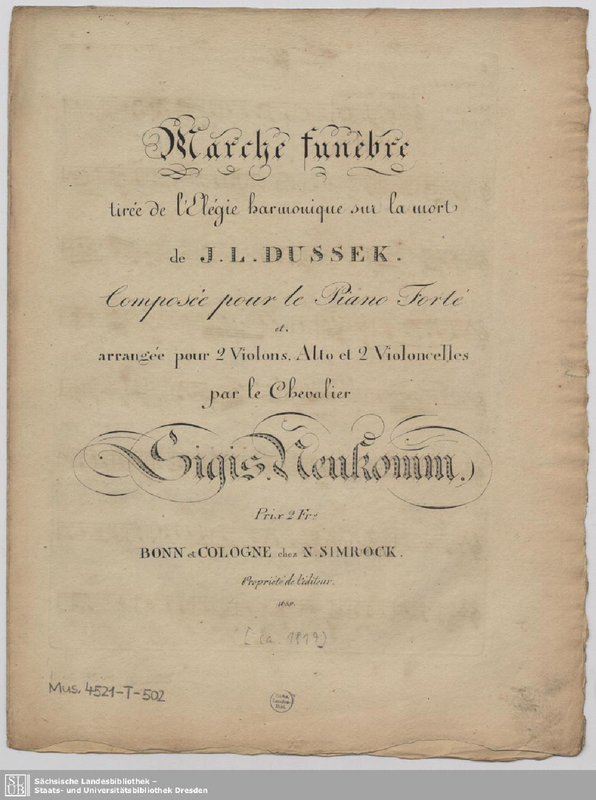 Marche funèbre
tirée de l'Elégie harmonique sur la mort
de J. L. DUSSEK.
Composée pour le Piano Forté
et
arrangée pour 2 Violons, Alto et 2 Violoncelles
par le Chevalier
Sigis. Neukomm.
Prix 2 Frs
BONN et COLOGNE chez N. SIMROCK.
Propriété de l'éditeur.
[ca. 1819]
Mus. 4521-T-502
SLUB
Sächsische Landesbibliothek –
Staats- und Universitätsbibliothek Dresden